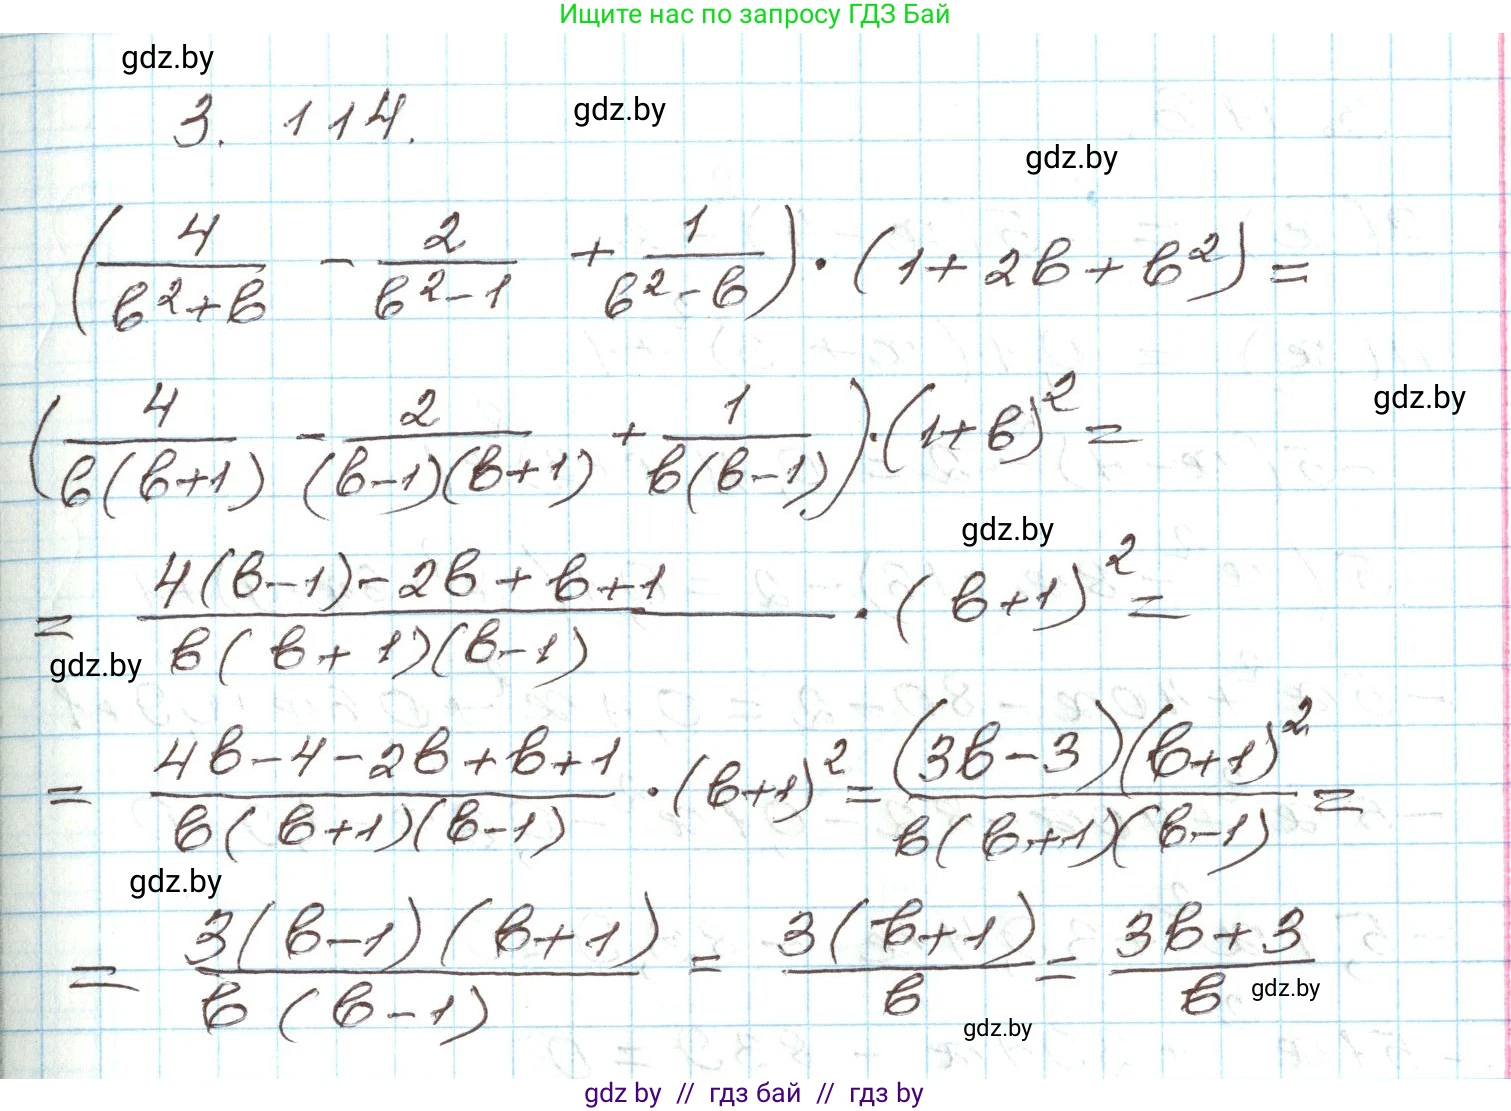 Ищите нас по запросу ГДЗ Бай
gdz.by
3. 114.
gdz.by
gdz.by
(4/(в²+в) - 2/(в²-1) + 1/(в²-в)) · (1+2в+в²) =
(4/(в(в+1)) - 2/((в-1)(в+1)) + 1/(в(в-1))) · (1+в)² =
gdz.by
gdz.by
= (4(в-1)-2в+в+1)/(в(в+1)(в-1)) · (в+1)² =
gdz.by
= (4в-4-2в+в+1)/(в(в+1)(в-1)) · (в+1)² = ((3в-3)(в+1)²)/(в(в+1)(в-1)) =
gdz.by
= (3(в-1)(в+1))/(в(в-1)) = (3(в+1))/в = (3в+3)/в
gdz.by
gdz.by
gdz.by // гдз бай // гдз by